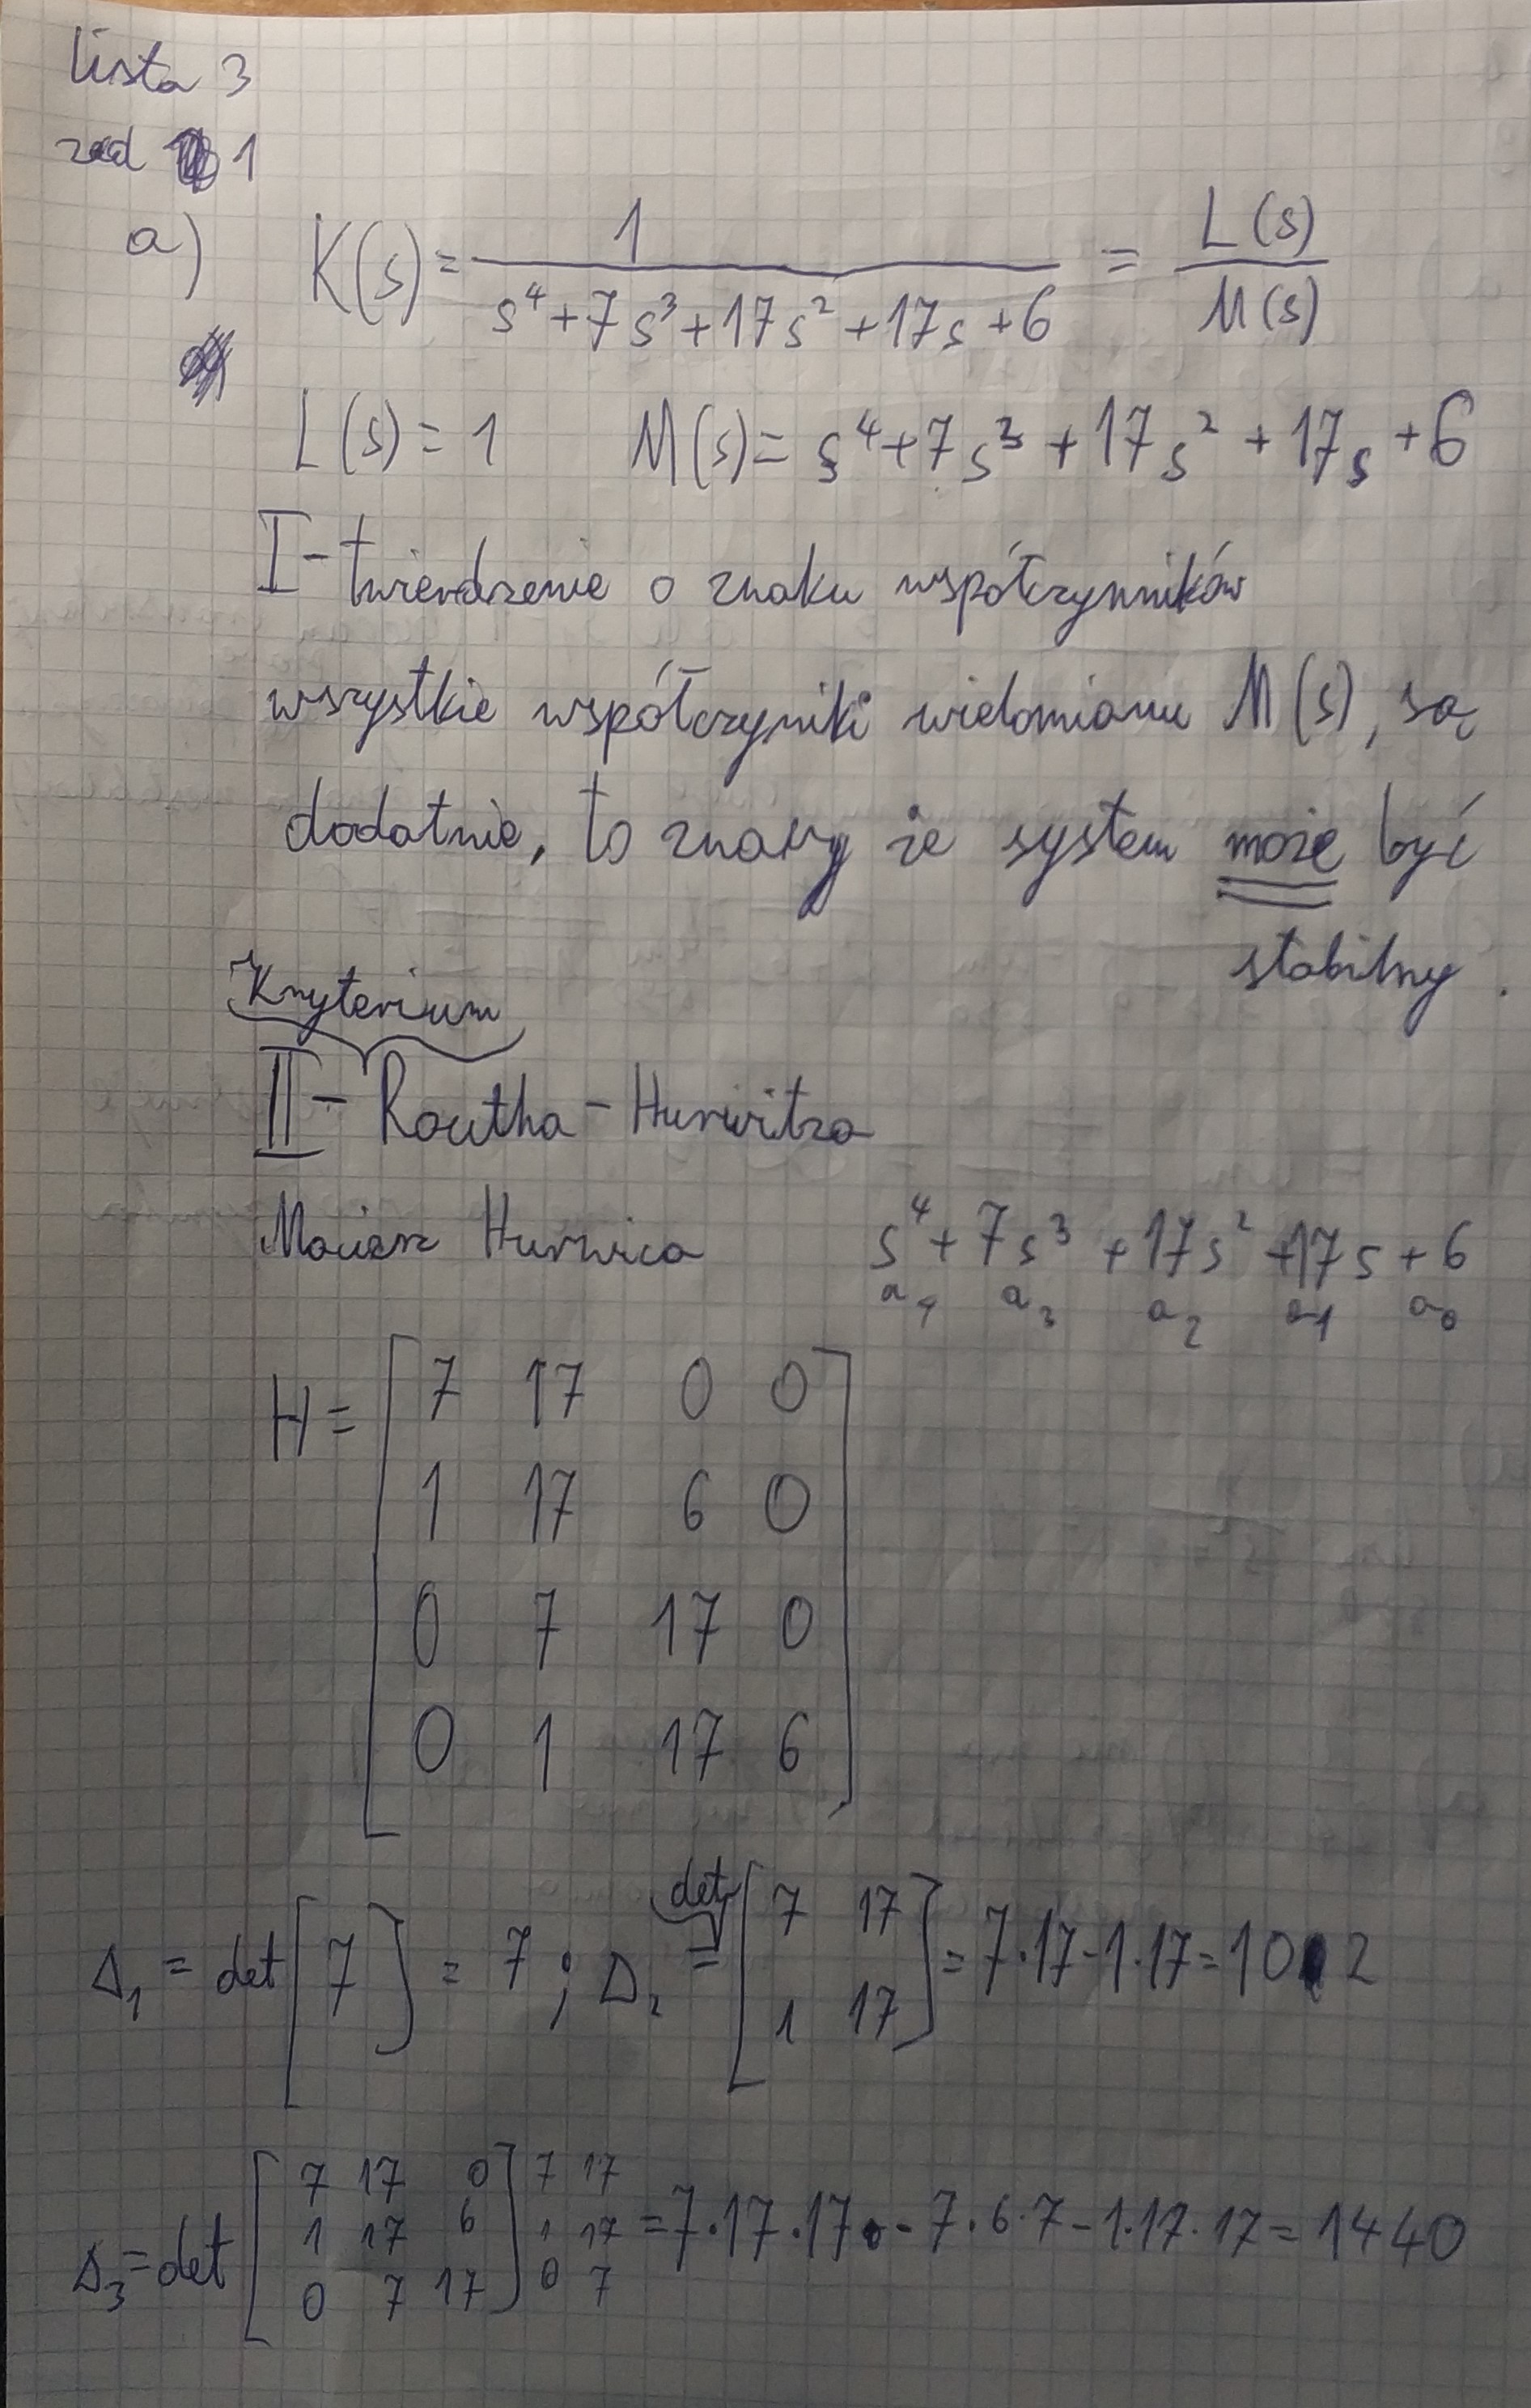 lista 3
zad 1
a) K(s) = 1 / (s⁴+7s³+17s²+17s+6) = L(s) / M(s)
L(s) = 1 M(s) = s⁴+7s³+17s²+17s+6
I - twierdzenie o znaku współczynników
wszystkie współczyniki wielomianu M(s), są
dodatnie, to znaczy że system może być
stabilny.
Kryterium
II - Routha-Hurwitza
Macierz Hurwica s⁴+7s³+17s²+17s+6
a₄ a₃ a₂ a₁ a₀
H = [ 7 17 0 0
1 17 6 0
0 7 17 0
0 1 17 6 ]
Δ₁ = det [7] = 7 ; Δ₂ = det [ 7 17
1 17 ] = 7·17-1·17=102
Δ₃ = det [ 7 17 0 ] 7 17
[ 1 17 6 ] 1 17 = 7·17·17 - 7·6·7 - 1·17·17 = 1440
[ 0 7 17 ] 0 7